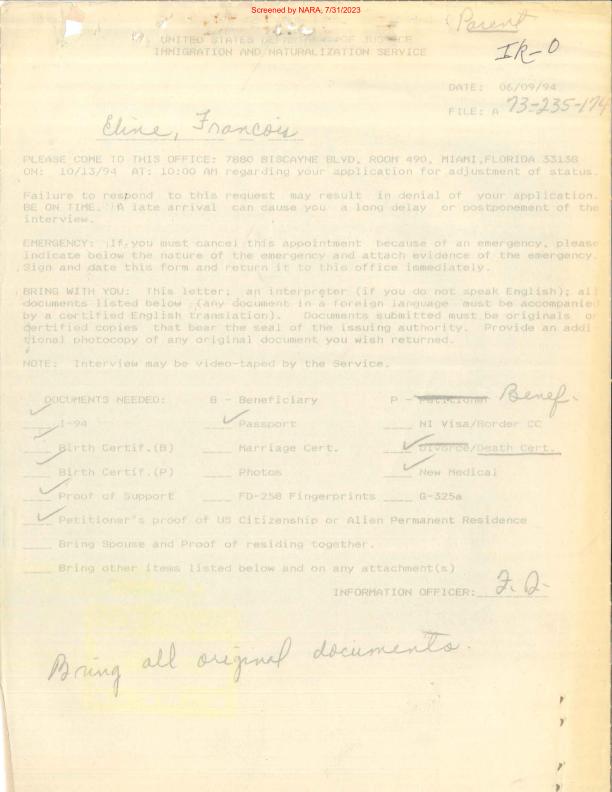 Screened by NARA, 7/31/2023
Parent
IR-0
UNITED STATES DEPARTMENT OF JUSTICE
IMMIGRATION AND NATURALIZATION SERVICE
DATE: 06/09/94
FILE: A 73-235-174
Eline, Francois
PLEASE COME TO THIS OFFICE: 7880 BISCAYNE BLVD, ROOM 490, MIAMI,FLORIDA 33138
ON: 10/13/94 AT: 10:00 AM regarding your application for adjustment of status.
Failure to respond to this request may result in denial of your application.
BE ON TIME. A late arrival can cause you a long delay or postponement of the
interview.
EMERGENCY: If you must cancel this appointment because of an emergency, please
indicate below the nature of the emergency and attach evidence of the emergency.
Sign and date this form and return it to this office immediately.
BRING WITH YOU: This letter; an interpreter (if you do not speak English); all
documents listed below (any document in a foreign language must be accompanied
by a certified English translation). Documents submitted must be originals or
certified copies that bear the seal of the issuing authority. Provide an addi
tional photocopy of any original document you wish returned.
NOTE: Interview may be video-taped by the Service.
DOCUMENTS NEEDED: B - Beneficiary P - Petitioner Benef.
I-94 Passport NI Visa/Border CC
Birth Certif.(B) Marriage Cert. Divorce/Death Cert.
Birth Certif.(P) Photos New Medical
Proof of Support FD-258 Fingerprints G-325a
Petitioner's proof of US Citizenship or Alien Permanent Residence
Bring Spouse and Proof of residing together.
Bring other items listed below and on any attachment(s)
INFORMATION OFFICER:
Bring all original documents.